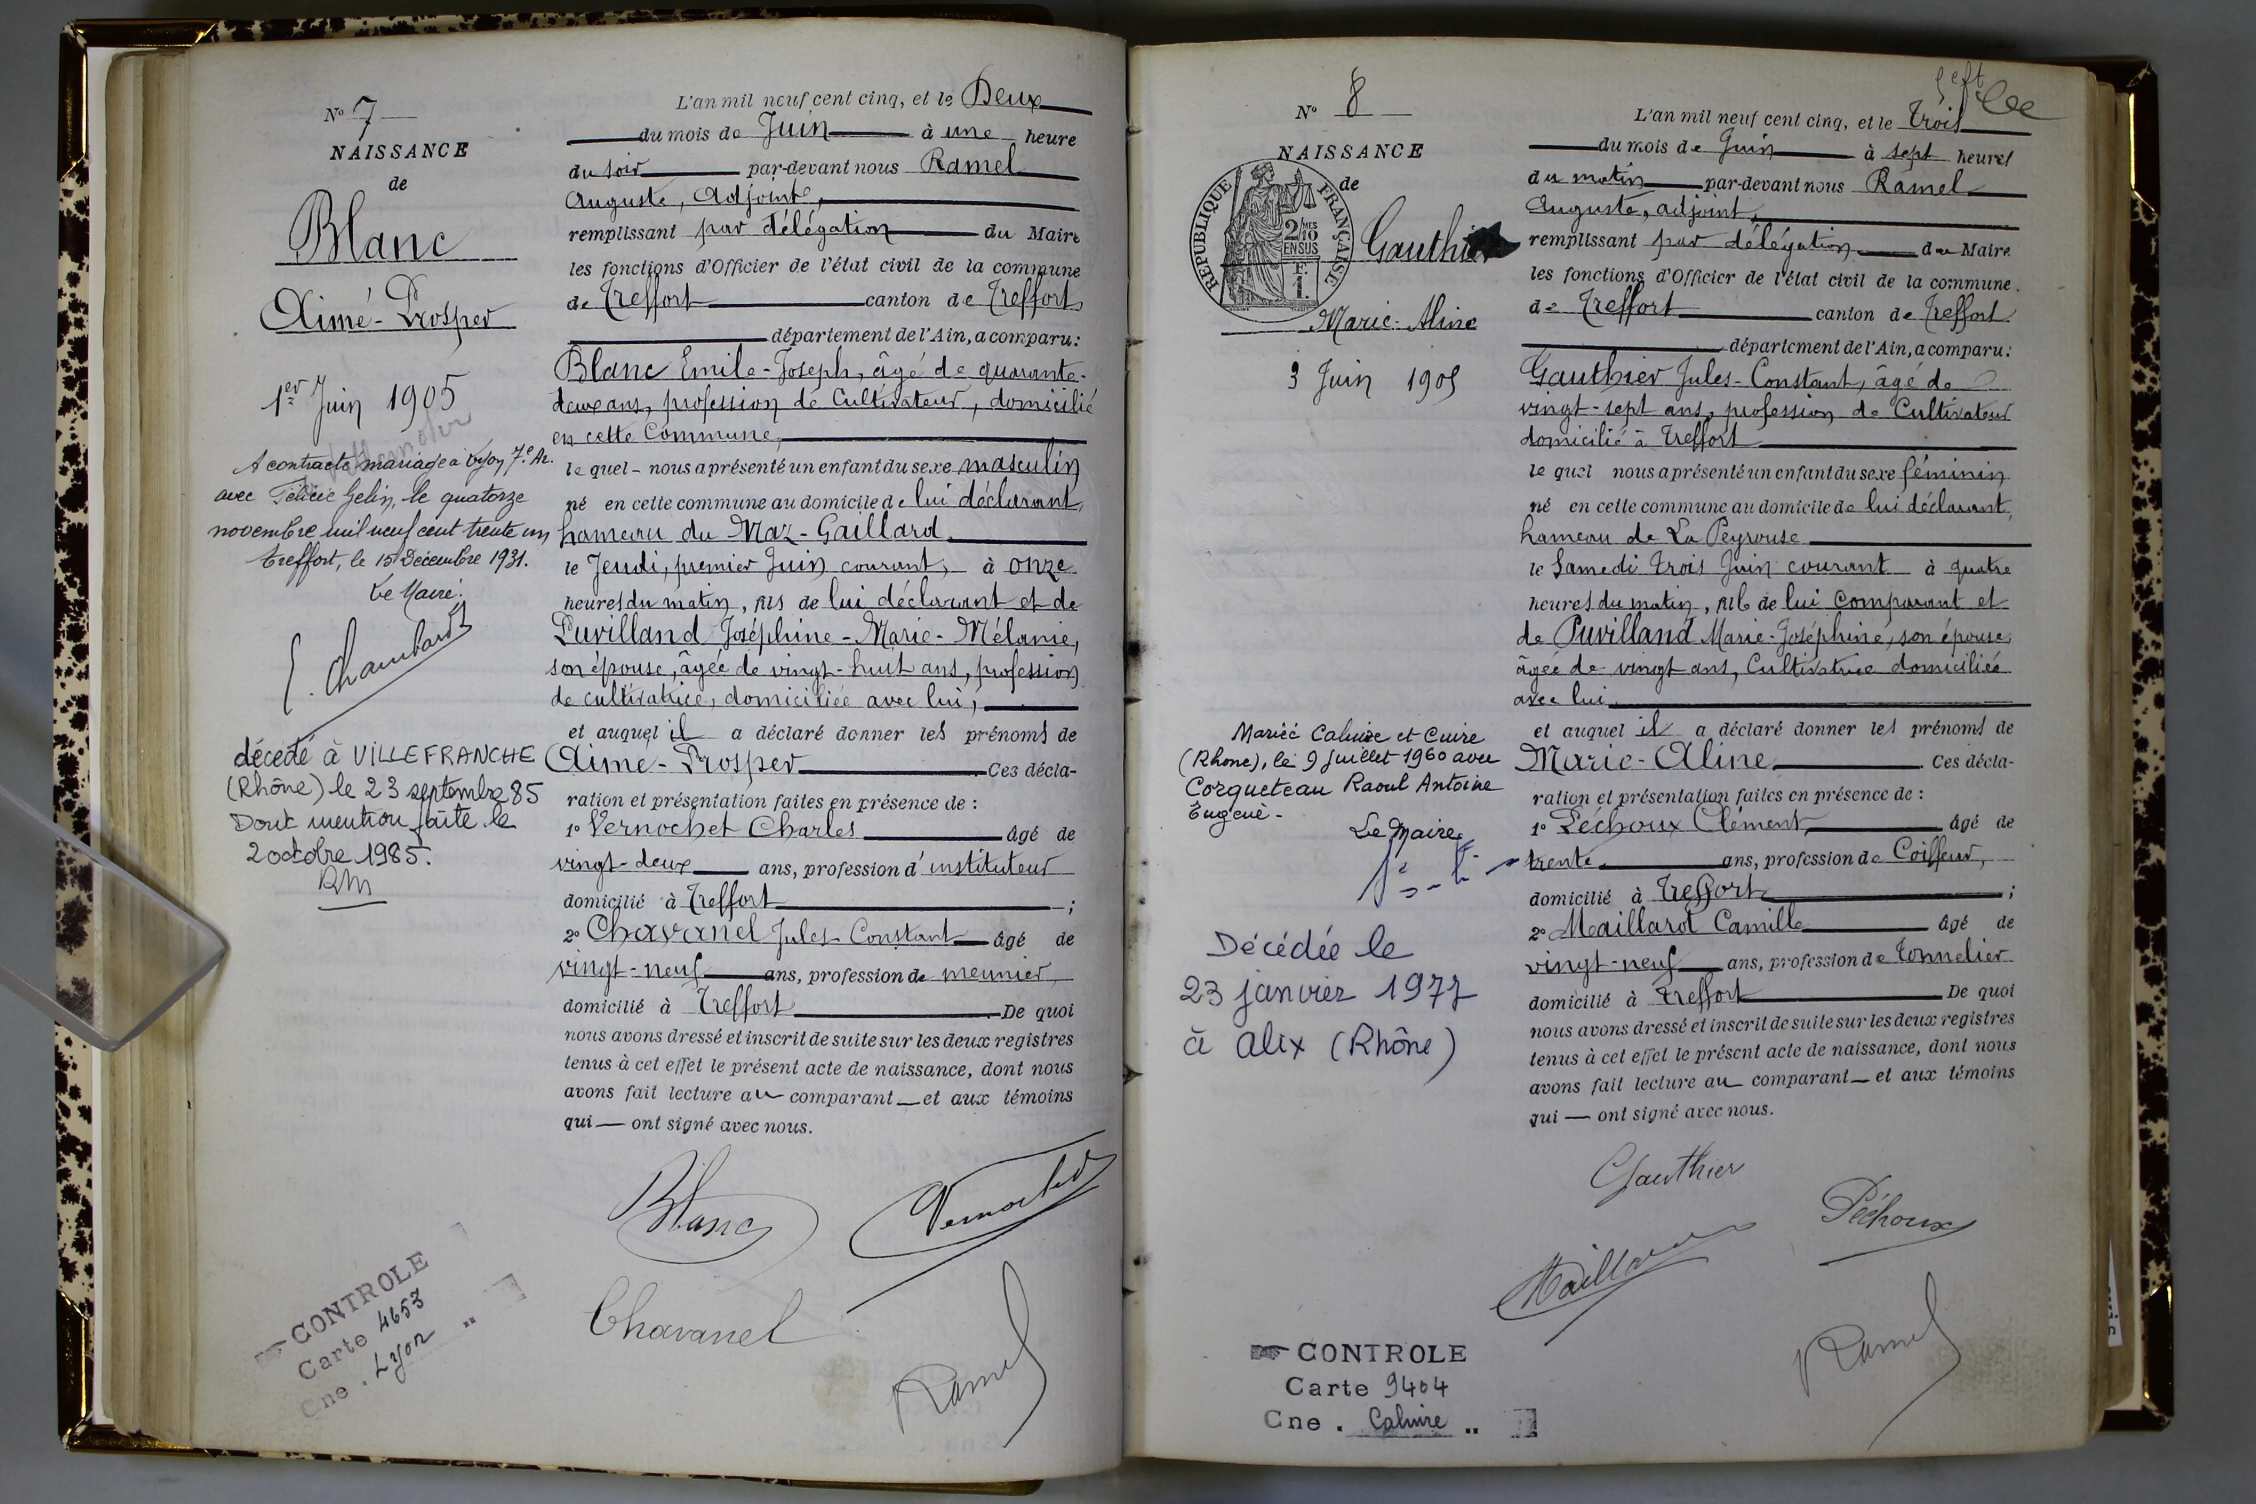 No 7
NAISSANCE
de
Blanc
Aimé-Prosper
1er Juin 1905
A contracté mariage à Lyon 7e Ar.
avec Félicie Gelin, le quatorze
novembre mil neuf cent trente un
Treffort, le 15 Décembre 1931.
Le Maire:
E. Chambard
décédé à VILLEFRANCHE
(Rhône) le 23 septembre 85
Dont mention faite le
2 octobre 1985.
RM
CONTROLE
Carte 4653
Cne. Lyon "
L'an mil neuf cent cinq, et le Deux
du mois de Juin à une heure
du soir par-devant nous Ramel
Auguste, Adjoint,
remplissant par délégation du Maire
les fonctions d'Officier de l'état civil de la commune
de Treffort canton de Treffort
département de l'Ain, a comparu:
Blanc Emile-Joseph, âgé de quarante-
deux ans, profession de Cultivateur, domicilié
en cette Commune,
le quel - nous a présenté un enfant du sexe masculin
né en cette commune au domicile de lui déclarant,
hameau du Maz-Gaillard
le Jeudi, premier Juin courant, à onze
heures du matin, fils de lui déclarant et de
Puvilland Joséphine-Marie-Mélanie,
son épouse, âgée de vingt-huit ans, profession
de cultivatrice, domiciliée avec lui,
et auquel il a déclaré donner les prénoms de
Aimé-Prosper Ces décla-
ration et présentation faites en présence de :
1o Vernochet Charles âgé de
vingt-deux ans, profession d'instituteur
domicilié à Treffort ;
2o Chavanel Jules-Constant âgé de
vingt-neuf ans, profession de meunier
domicilié à Treffort De quoi
nous avons dressé et inscrit de suite sur les deux registres
tenus à cet effet le présent acte de naissance, dont nous
avons fait lecture au comparant et aux témoins
qui ont signé avec nous.
Blanc
Vernochet
Chavanel
Ramel
No 8
NAISSANCE
de
REPUBLIQUE FRANÇAISE
2/10 MES
EN SUS
1 F.
Gauthier
Marie-Aline
3 Juin 1905
Mariée Caluire et Cuire
(Rhone), le 9 juillet 1960 avec
Corqueteau Raoul Antoine
Eugène -
Le Maire,
Décédée le
23 janvier 1977
à Alix (Rhône)
CONTROLE
Carte 9404
Cne. Caluire "
L'an mil neuf cent cinq, et le Trois
du mois de Juin à sept heures
du matin par-devant nous Ramel
Auguste, adjoint,
remplissant par délégation du Maire
les fonctions d'Officier de l'état civil de la commune.
de Treffort canton de Treffort
département de l'Ain, a comparu:
Gauthier Jules-Constant, âgé de
vingt-sept ans, profession de Cultivateur
domicilié à Treffort
le quel nous a présenté un enfant du sexe féminin
né en cette commune au domicile de lui déclarant,
hameau de La Peyrouse
le Samedi trois Juin courant à quatre
heures du matin, fille de lui comparant et
de Puvilland Marie-Joséphine, son épouse,
âgée de vingt ans, Cultivatrice domiciliée
avec lui
et auquel il a déclaré donner les prénoms de
Marie-Aline Ces décla-
ration et présentation faites en présence de :
1o Péchoux Clément âgé de
trente ans, profession de Coiffeur,
domicilié à Treffort ;
2o Maillard Camille âgé de
vingt-neuf ans, profession de Tonnelier
domicilié à Treffort De quoi
nous avons dressé et inscrit de suite sur les deux registres
tenus à cet effet le présent acte de naissance, dont nous
avons fait lecture au comparant et aux témoins
qui ont signé avec nous.
Gauthier
Péchoux
Maillard
Ramel